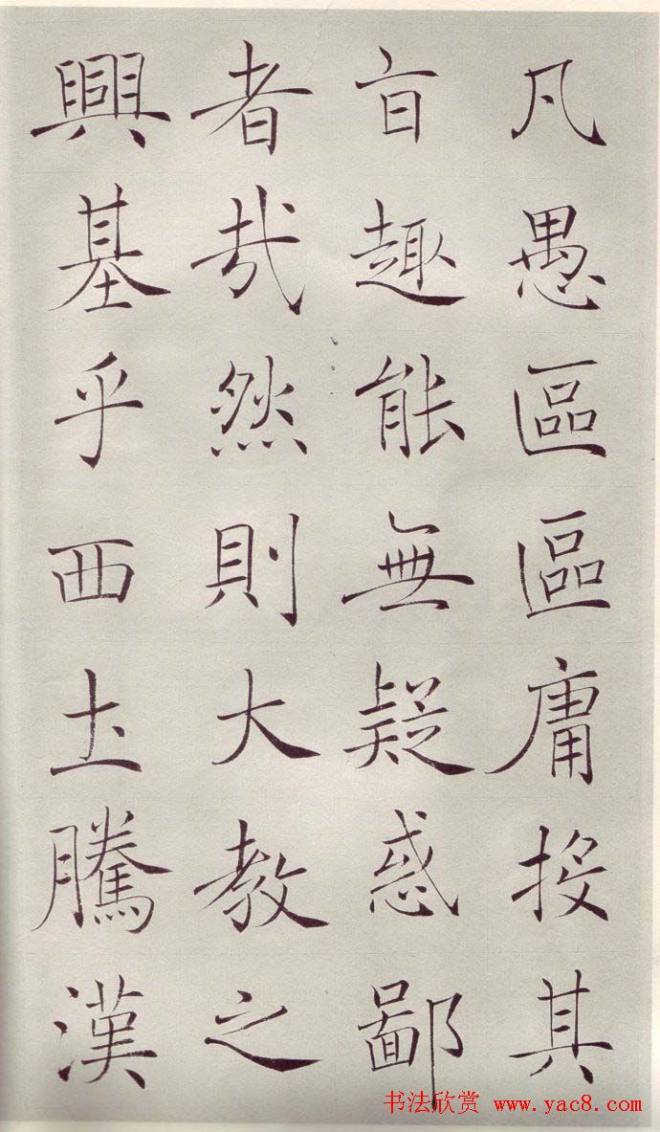 凡愚區區庸投其
旨趣能無疑惑鄙
者哉然則大教之
興基乎西土騰漢
书法欣赏 www.yac8.com